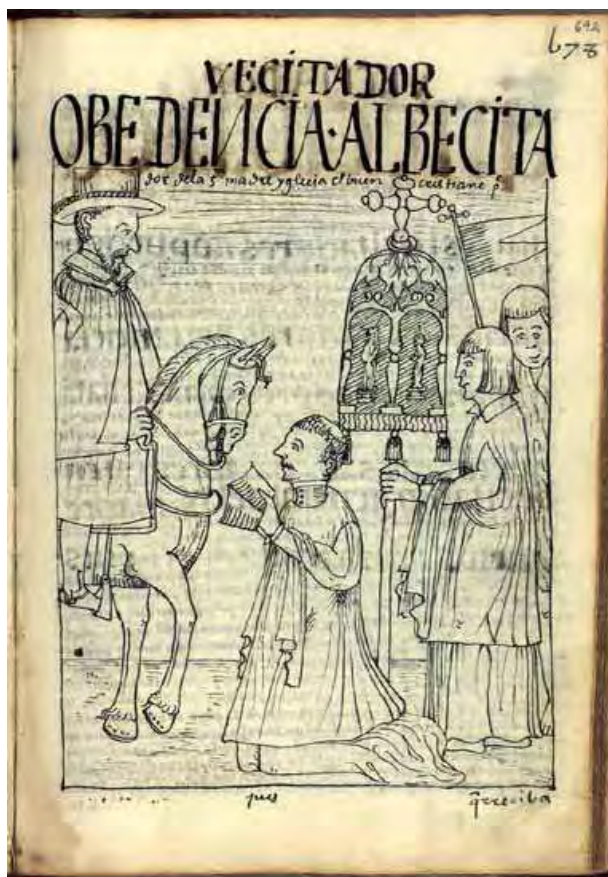 692
678
VECÍTADOR
OBEDENCÍA·ALBECÍTA
dor dela s̃ madre yglecia el buen cristiano p̃
pues
q̃ reciba